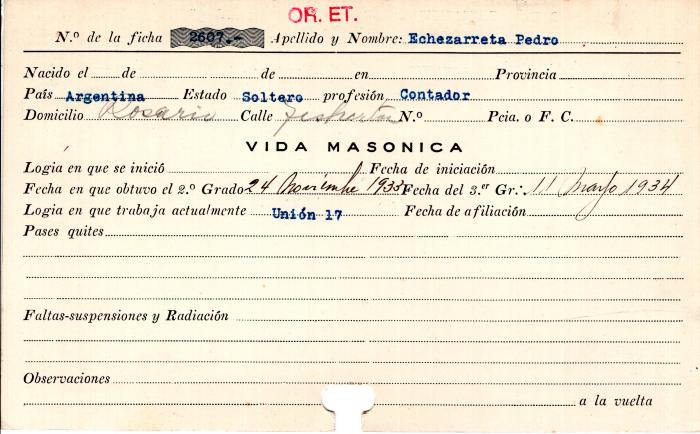 OR. ET.
N.º de la ficha 2607.- Apellido y Nombre: Echezarreta Pedro
Nacido el de de en Provincia
País Argentina Estado Soltero profesión Contador
Domicilio Rosario Calle Fisherton N.º Pcia. o F. C.
VIDA MASONICA
Logia en que se inició Fecha de iniciación
Fecha en que obtuvo el 2.º Grado 24 Noviembre 1933 Fecha del 3.er Gr∴ 11 Mayo 1934
Logia en que trabaja actualmente Unión 17 Fecha de afiliación
Pases quites
Faltas-suspensiones y Radiación
Observaciones
a la vuelta